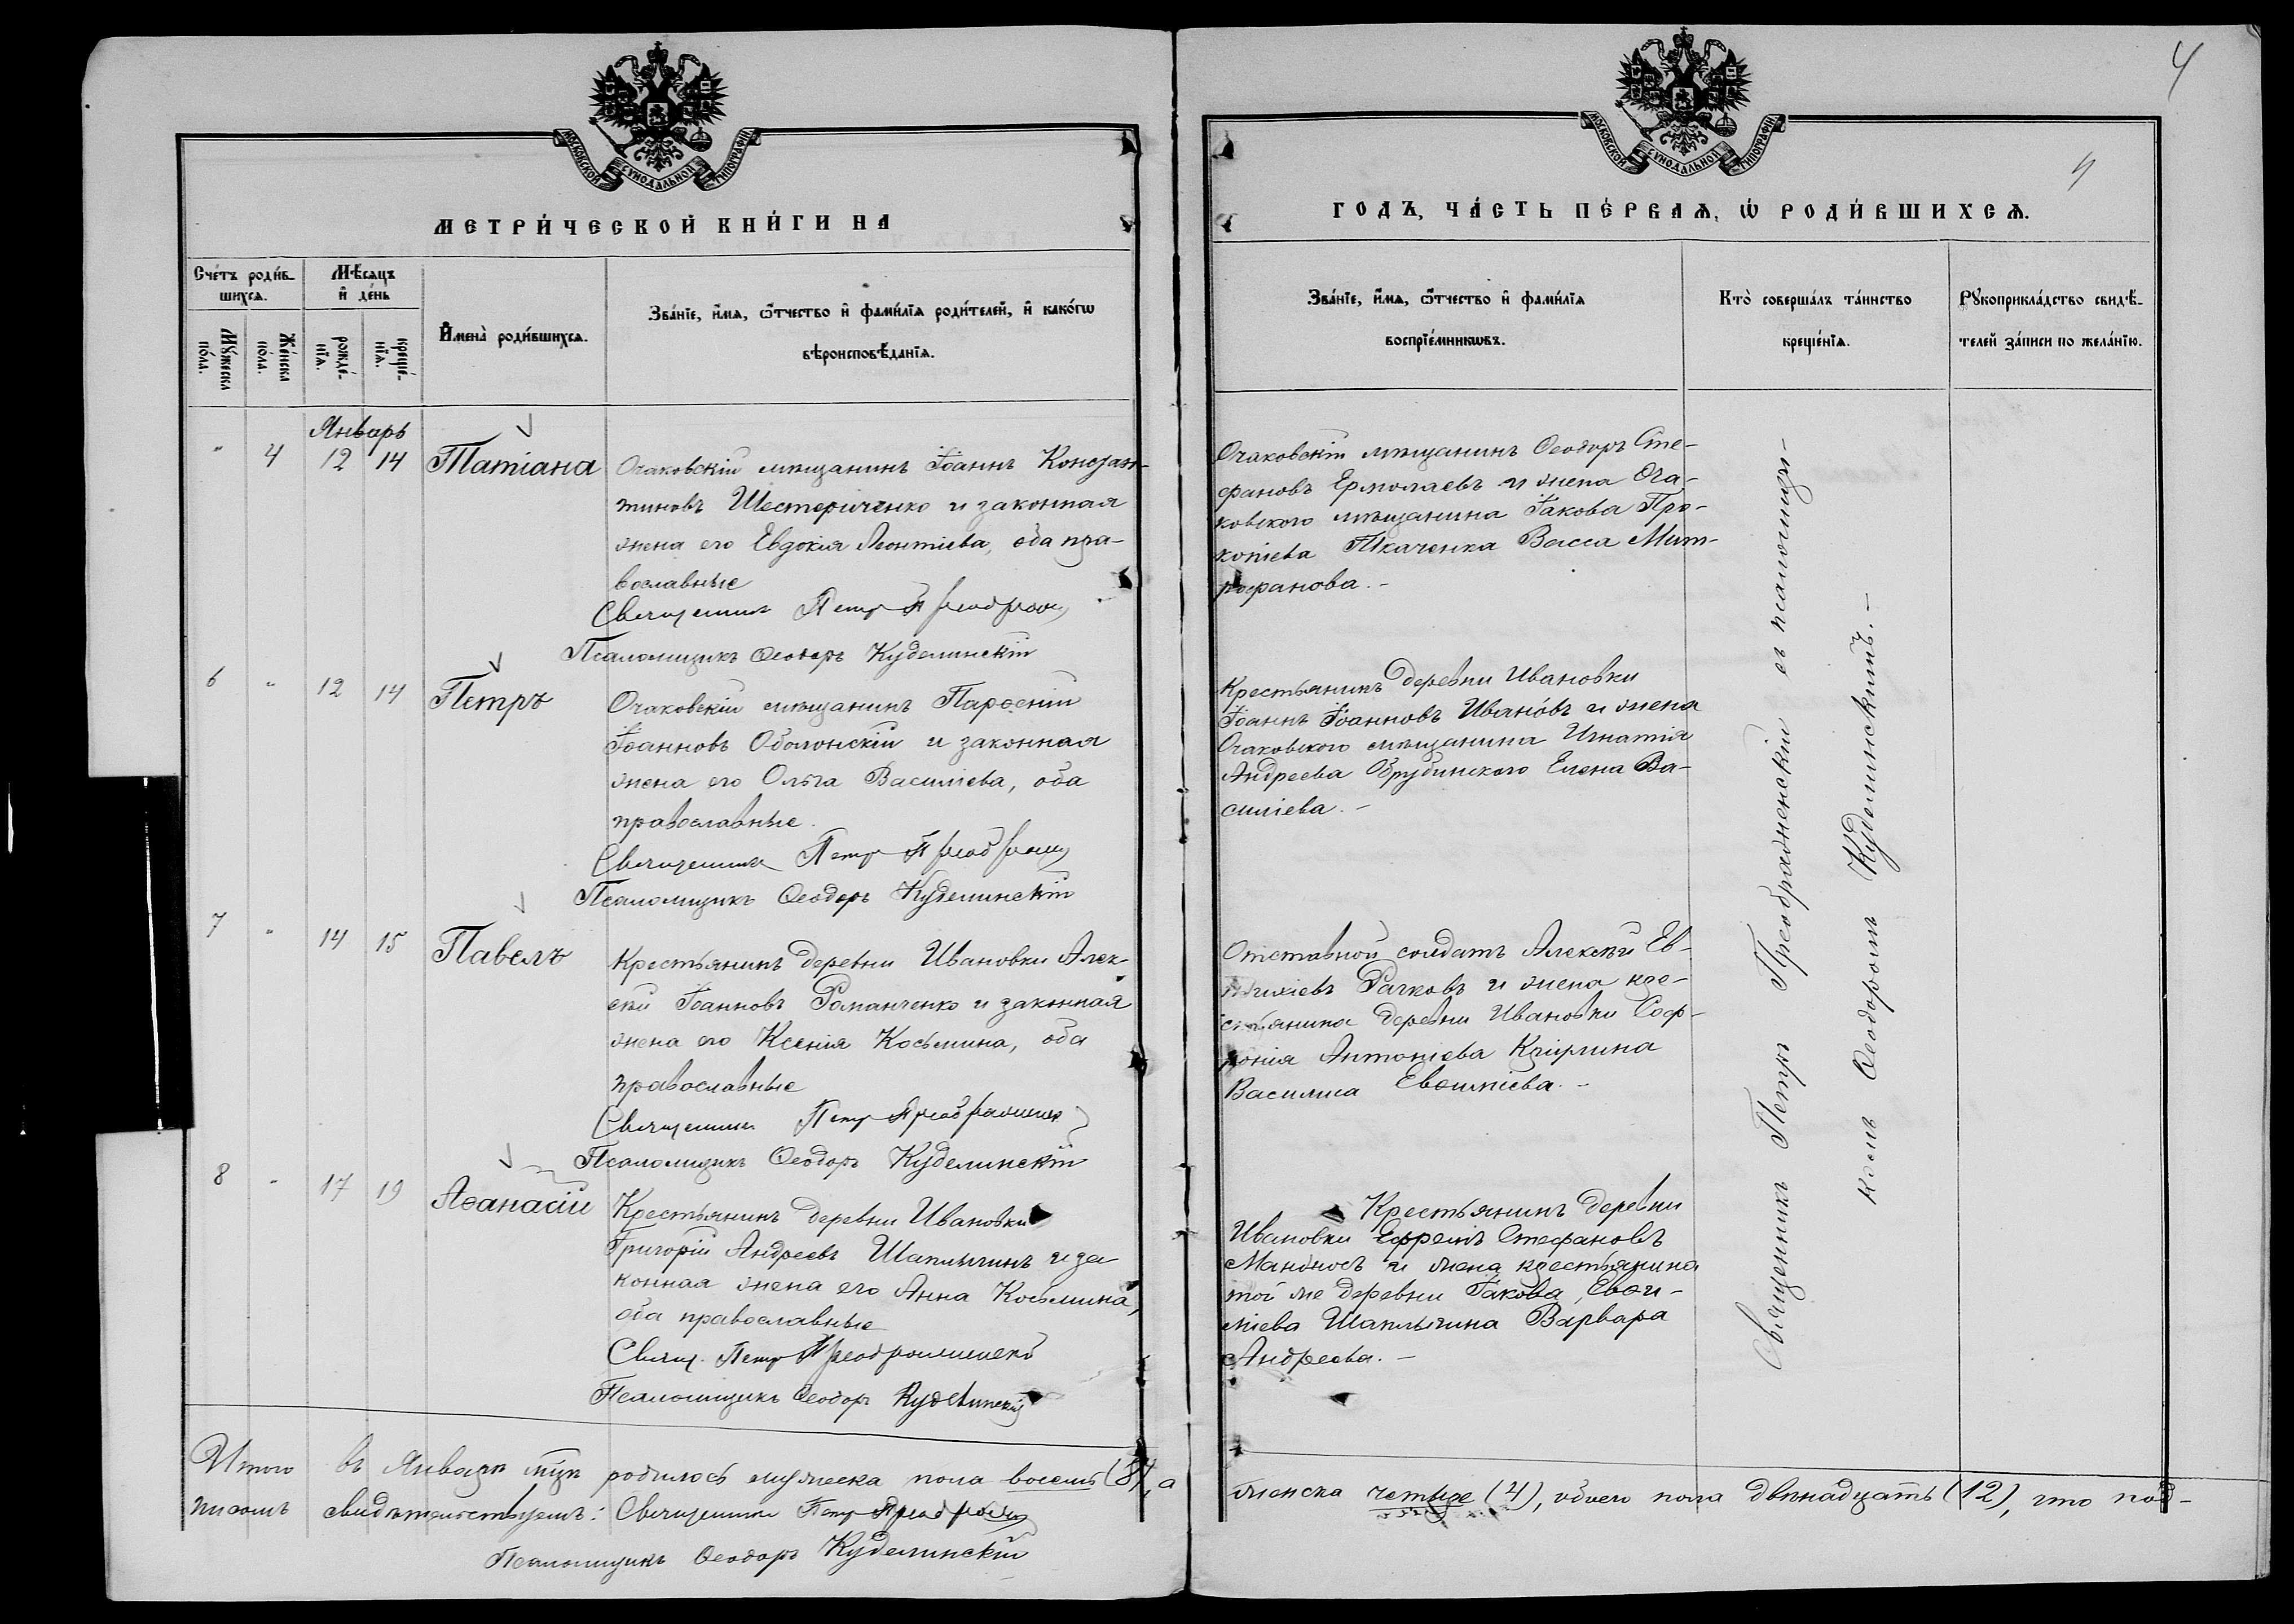 4
4
МОСКОВСКОЙ СѴНОДАЛЬНОЙ ТИПОГРАФІИ
МОСКОВСКОЙ СѴНОДАЛЬНОЙ ТИПОГРАФІИ
МЕТРИ́ЧЕСКОЙ КНИ́ГИ НА
ГОДЪ, ЧА́СТЬ ПЕ́РВАѦ, Ѡ҆ РОДИ́ВШИХСѦ.
Сче́тъ роди́в-
шихсѧ.
Мѣ́сѧцъ
и҆ де́нь
Мꙋ́жеска
по́ла.
Же́нска
по́ла.
рожде́-
нїѧ.
креще́-
нїѧ.
И҆мена̀ роди́вшихсѧ.
Зва́нїе, и҆́мѧ, ѻ҆́тчество и҆ фами́лїѧ роди́телей, и҆ како́гѡ
вѣроисповѣ́данїѧ.
Зва́нїе, и҆́мѧ, ѻ҆́тчество и҆ фами́лїѧ
воспрїе́мникѡвъ.
Кто̀ соверша́лъ та́инство
креще́нїѧ.
Рꙋкоприкла́дство свидѣ́-
телей за́писи по жела́нїю.
Январь
" 4 12 14 Татіана
Очаковскій мѣщанинъ Іоаннъ Констан-
тиновъ Шестериченко и законная
жена его Евдокія Леонтіева, оба пра-
вославные
Священникъ Петръ Преображен
Псаломщикъ Ѳеодоръ Куделинскій
Очаковскій мѣщанинъ Ѳеодоръ Сте-
фановъ Ермолаевъ и жена Оча-
ковского мѣщанина Іакова Про-
копіева Ткаченка Васса Мит-
рофанова. -
6 " 12 14 Петръ
Очаковскій мѣщанинъ Парѳеній
Іоанновъ Оболонскій и законная
жена его Ольга Василіева, оба
православные.
Священникъ Петръ Преображен
Псаломщикъ Ѳеодоръ Куделинскій
Крестьянинъ деревни Ивановки
Іоаннъ Іоанновъ Ивановъ и жена
Очаковского мѣщанина Игнатія
Андреева Елена Ва-
силіева. -
7 " 14 15 Павелъ
Крестьянинъ деревни Ивановки Алек-
сѣй Іоанновъ Романченко и законная
жена его Ксенія Косьмина, оба
православные
Священникъ Петръ Преображенск
Псаломщикъ Ѳеодоръ Куделинскій
Отставной солдатъ Алексѣй Ев-
Рачковъ и жена кре-
стьянина деревни Ивановки Соф-
ронія Антоніева
Василиса Евѳиміева. -
8 " 17 19 Аѳанасій
Крестьянинъ деревни Ивановки
Григорій Андреевъ Шаплыгинъ и за
конная жена его Анна Косьмина,
оба православные
Свящ. Петръ Преображенскій
Псаломщикъ Ѳеодоръ Куделинскій
Крестьянинъ деревни
Ивановки Ефремъ Стефановъ
и жена крестьянина
той же деревни Іакова Евѳи-
міева Шаплыгина Варвара
Андреева. -
Священникъ Петръ Преображенскій съ псаломщи-
комъ Ѳеодоромъ Куделинскимъ. -
Итого въ Январѣ мцѣ родилось мужеска пола восемь (8), а
женска четыре (4), обоего пола двѣнадцать (12), что под-
писомъ свидѣтельствуемъ: Священникъ Петръ Преображен
Псаломщикъ Ѳеодоръ Куделинскій